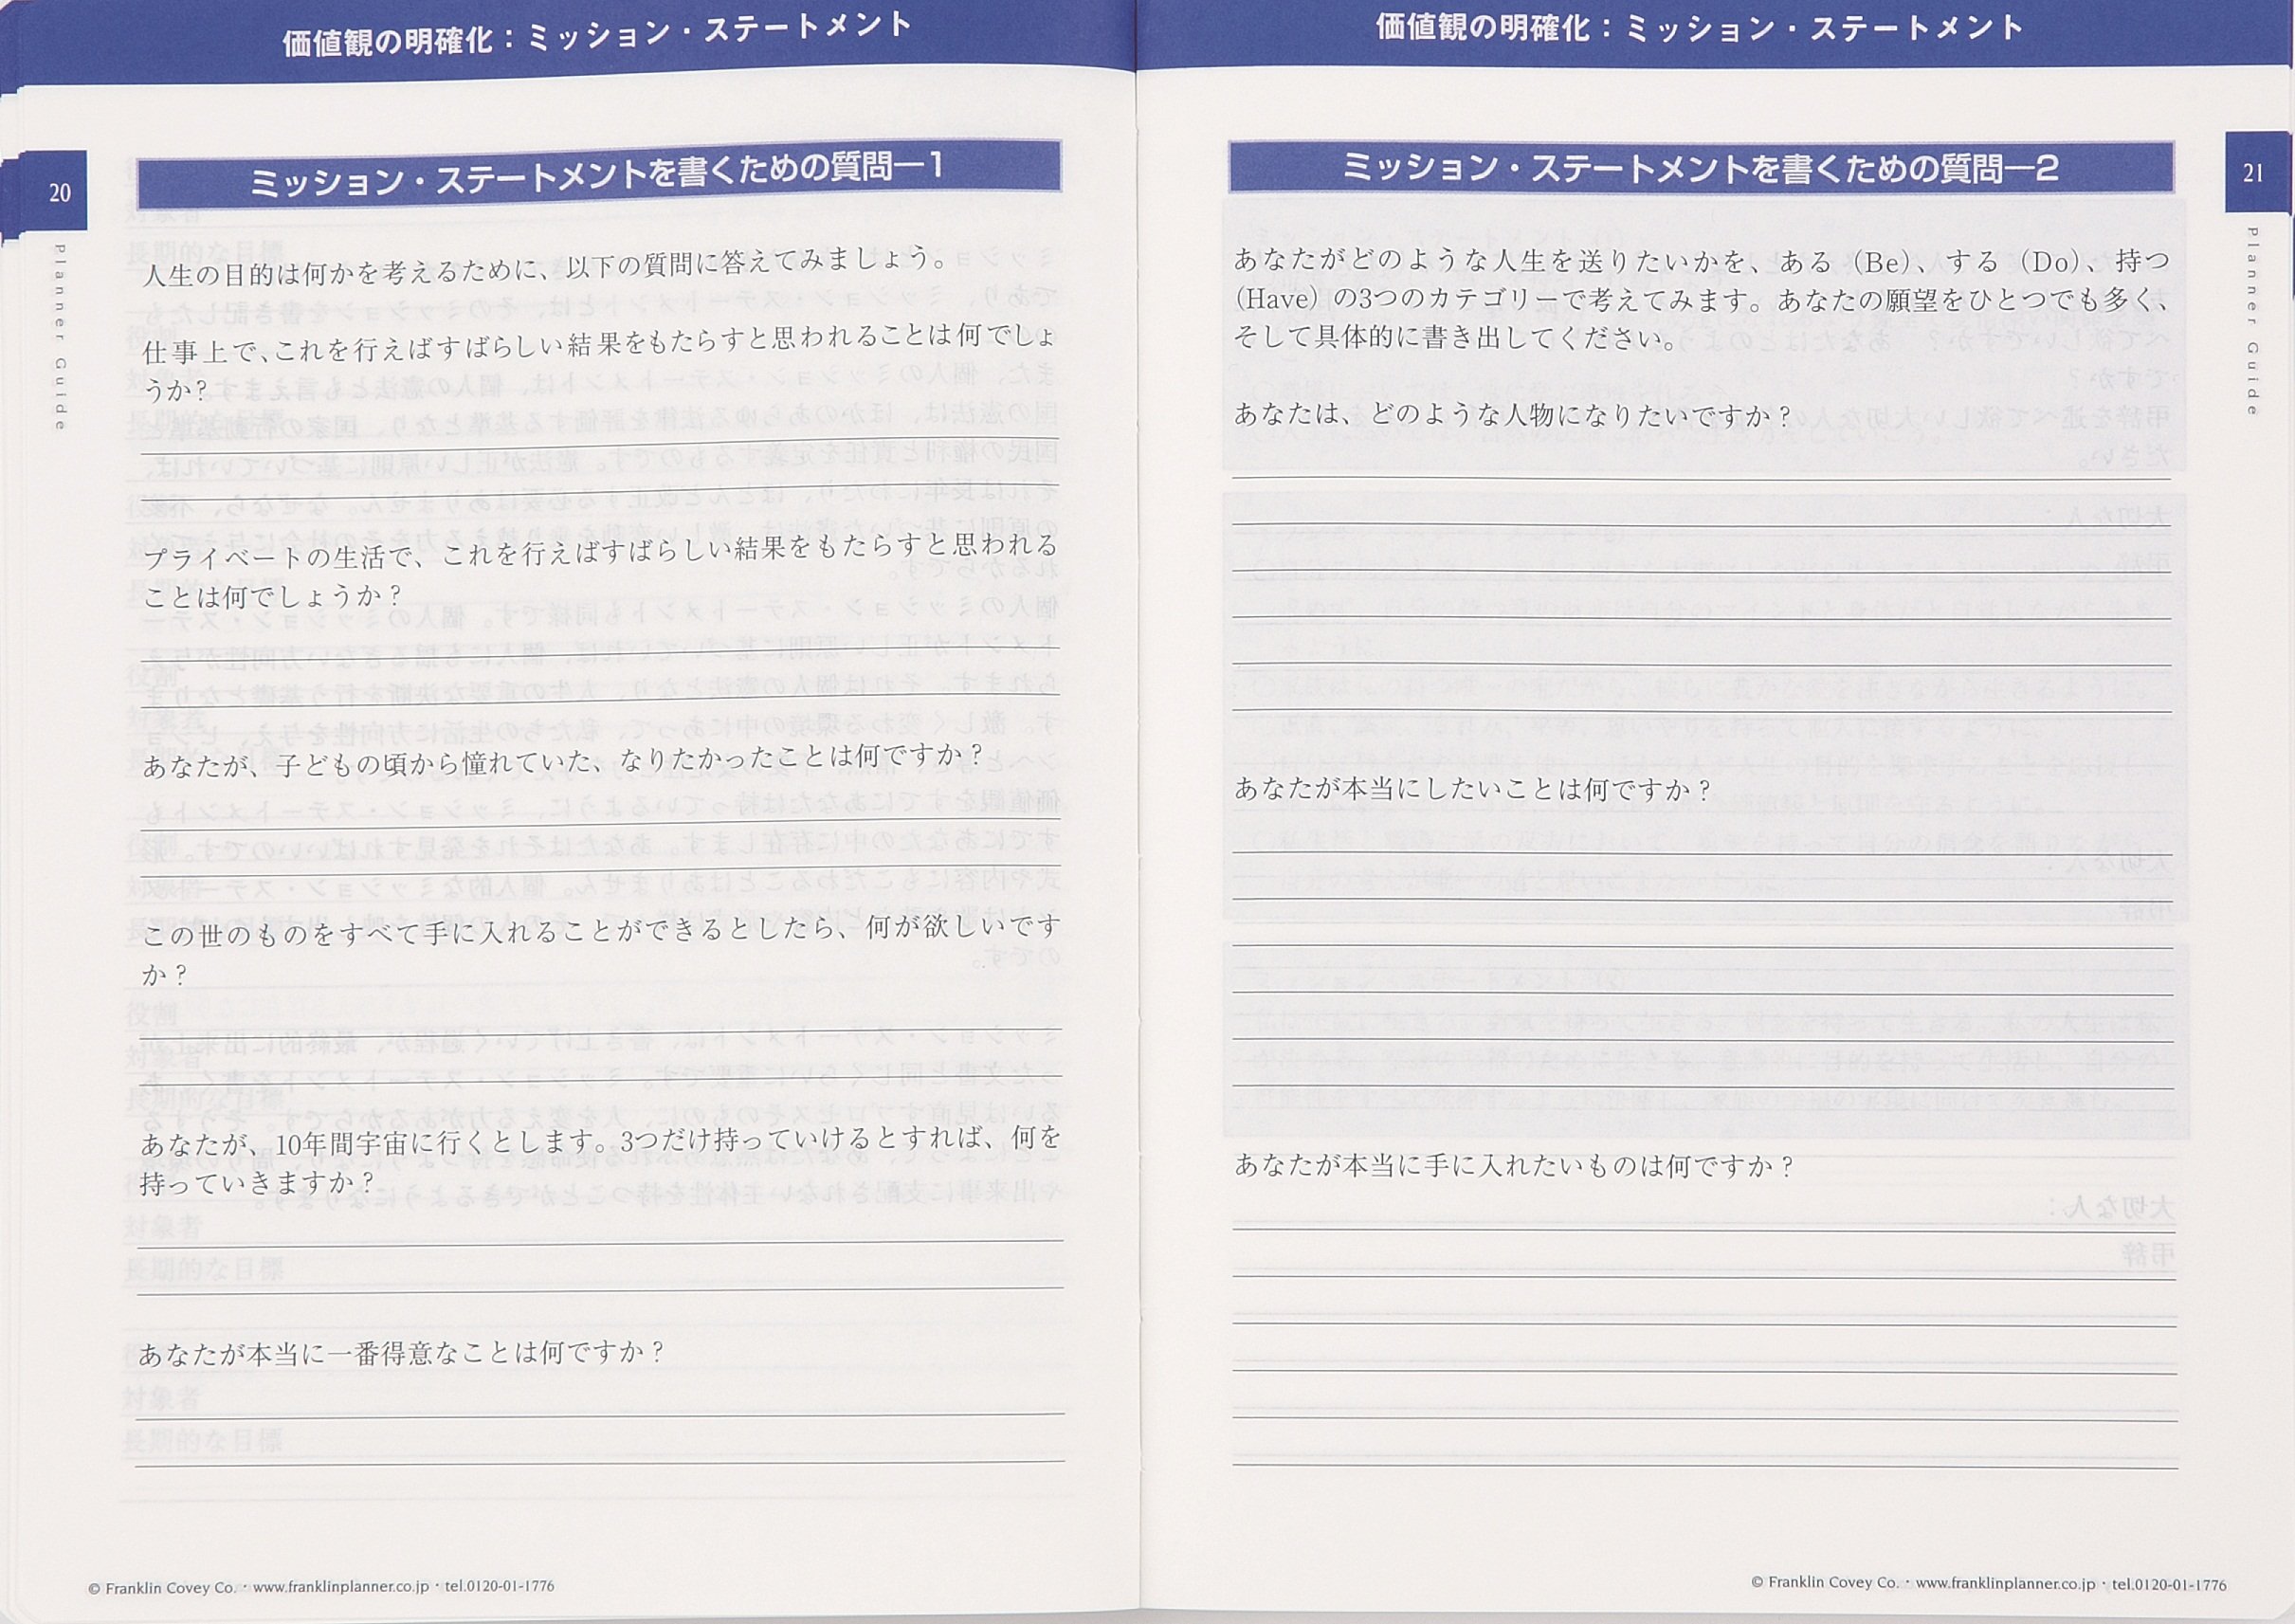 価値観の明確化：ミッション・ステートメント
20
Planner Guide
ミッション・ステートメントを書くための質問―1
人生の目的は何かを考えるために、以下の質問に答えてみましょう。
仕事上で、これを行えばすばらしい結果をもたらすと思われることは何でしょ
うか？
プライベートの生活で、これを行えばすばらしい結果をもたらすと思われる
ことは何でしょうか？
あなたが、子どもの頃から憧れていた、なりたかったことは何ですか？
この世のものをすべて手に入れることができるとしたら、何が欲しいです
か？
あなたが、10年間宇宙に行くとします。3つだけ持っていけるとすれば、何を
持っていきますか？
あなたが本当に一番得意なことは何ですか？
© Franklin Covey Co.・www.franklinplanner.co.jp・tel.0120-01-1776
価値観の明確化：ミッション・ステートメント
21
Planner Guide
ミッション・ステートメントを書くための質問―2
あなたがどのような人生を送りたいかを、ある（Be）、する（Do）、持つ
（Have）の3つのカテゴリーで考えてみます。あなたの願望をひとつでも多く、
そして具体的に書き出してください。
あなたは、どのような人物になりたいですか？
あなたが本当にしたいことは何ですか？
あなたが本当に手に入れたいものは何ですか？
© Franklin Covey Co.・www.franklinplanner.co.jp・tel.0120-01-1776